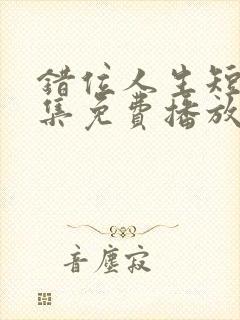 错位人生短
集免费播放
音尘寂